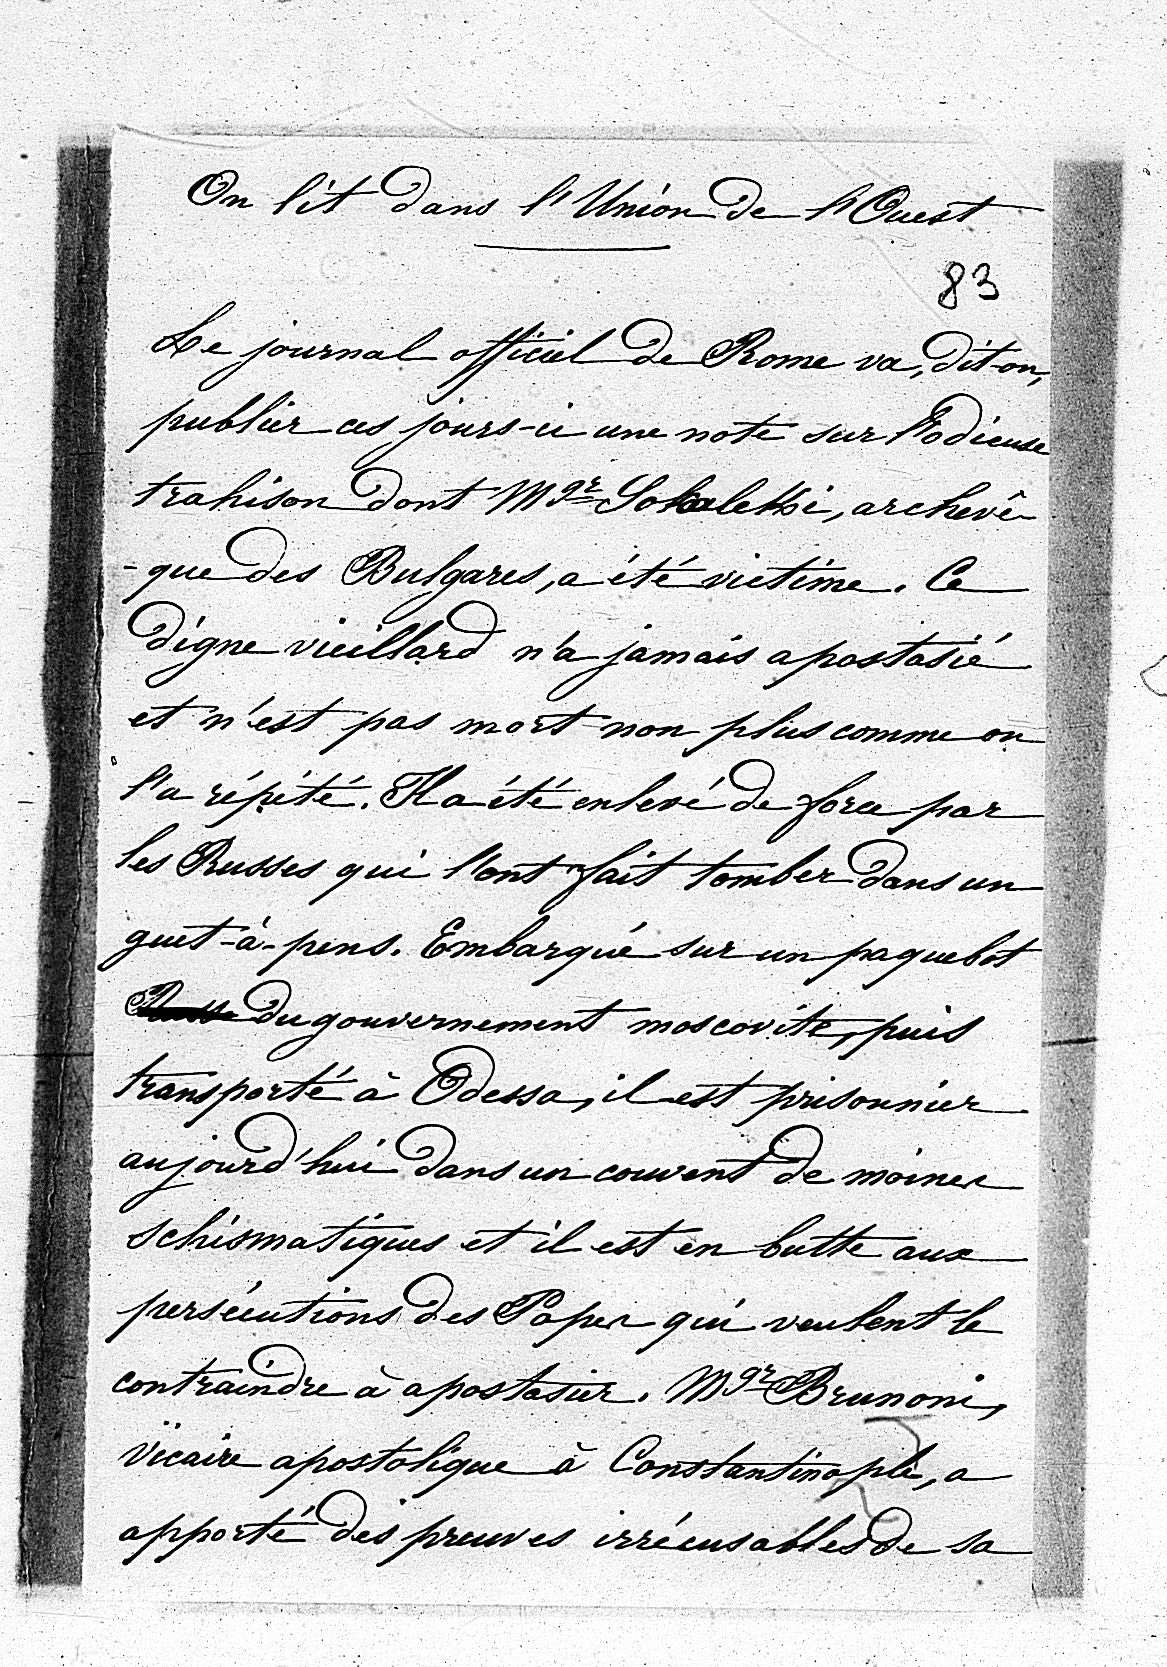 On lit dans l'Union de l'Ouest
83
Le journal officiel de Rome va, dit-on,
publier ces jours-ci une note sur l'odieuse
trahison dont Mgr Sokaletski, archevê-
-que des Bulgares, a été victime. Ce
digne vieillard n'a jamais apostasié
et n'est pas mort non plus comme on
l'a répété. Il a été enlevé de force par
les Russes qui l'ont fait tomber dans un
guet-à-pens. Embarqué sur un paquebot
Russe du gouvernement moscovite, puis
transporté à Odessa, il est prisonnier
aujourd'hui dans un couvent de moines
schismatiques et il est en butte aux
persécutions des Papes qui veulent le
contraindre à apostasier. Mgr Brunoni,
vicaire apostolique à Constantinople, a
apporté des preuves irrécusables de sa